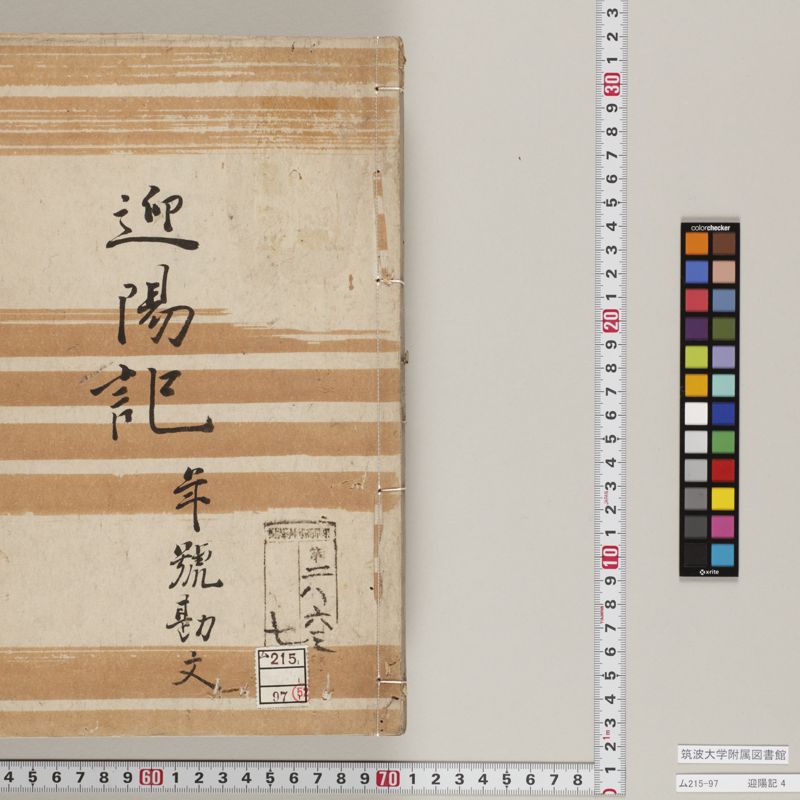 迎陽記
年號勘文
第二八六三
七
ム215
97 (5)
colorchecker
x-rite
筑波大学附属図書館
ム215-97 迎陽記 4
3
2
1
30
9
8
7
6
5
4
3
2
1
20
9
8
7
6
5
4
3
2
1
10
9
8
7
6
5
4
3
2
1
4 5 6 7 8 9 60 1 2 3 4 5 6 7 8 9 70 1 2 3 4 5 6 7 8